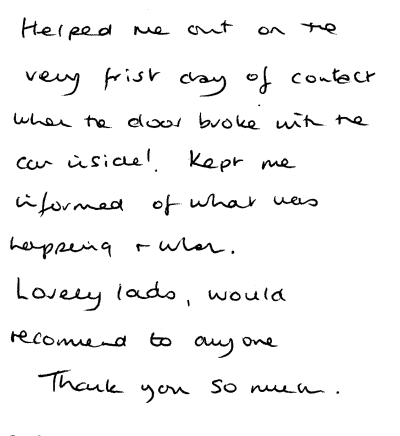 Helped me out on the
very frist day of contact
when the door broke with the
car inside! Kept me
informed of what was
happening + when.
Lovely lads, would
recomend to any one
Thank you so much.